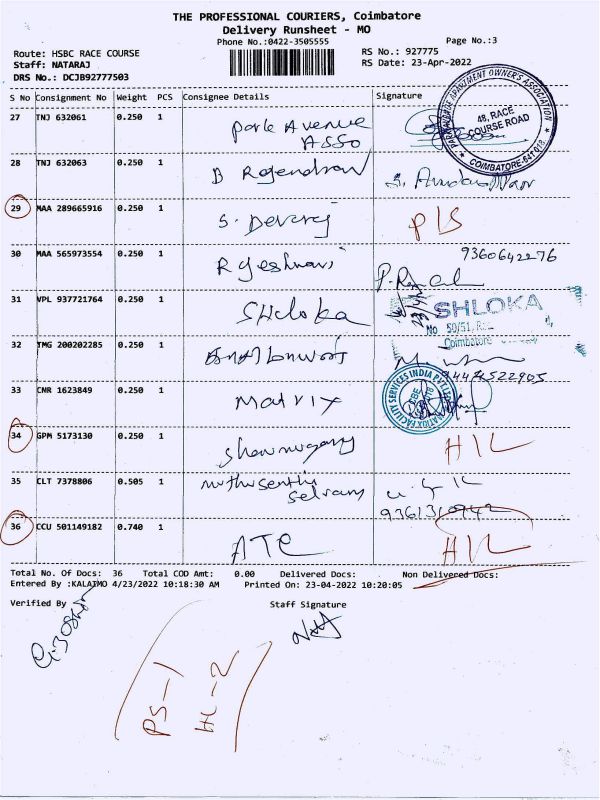 THE PROFESSIONAL COURIERS, Coimbatore
Delivery Runsheet - MO
Phone No.:0422-3505555
Page No.:3
Route: HSBC RACE COURSE
RS No.: 927775
Staff: NATARAJ
RS Date: 23-Apr-2022
DRS No.: DCJB92777503
S No Consignment No Weight PCS Consignee Details Signature
27 TNJ 632061 0.250 1 Park Avenue
Asso
PARK APARTMENT OWNER'S ASSOCIATION
48, RACE
COURSE ROAD
COIMBATORE-641 018
28 TNJ 632063 0.250 1 B Rajendran
29 MAA 289665916 0.250 1 S. Devaraj P/S
30 MAA 565973554 0.250 1 Rajeshwari 9360642276
31 VPL 937721764 0.250 1 Shloka SHLOKA
No 50/51, R
Coimbatore
32 TMG 200202285 0.250 1
9444522905
33 CNR 1623849 0.250 1 Matrix
FACILITY SERVICES INDIA PVT LTD
34 GPM 5173130 0.250 1 Shanmugam H/L
35 CLT 7378806 0.505 1 Muthusenthil
Selvam
36 CCU 501149182 0.740 1 ATC H/L
Total No. Of Docs: 36 Total COD Amt: 0.00 Delivered Docs: Non Delivered Docs:
Entered By :KALAIMO 4/23/2022 10:18:30 AM Printed On: 23-04-2022 10:20:05
Verified By
Staff Signature
PS-1
HL-2